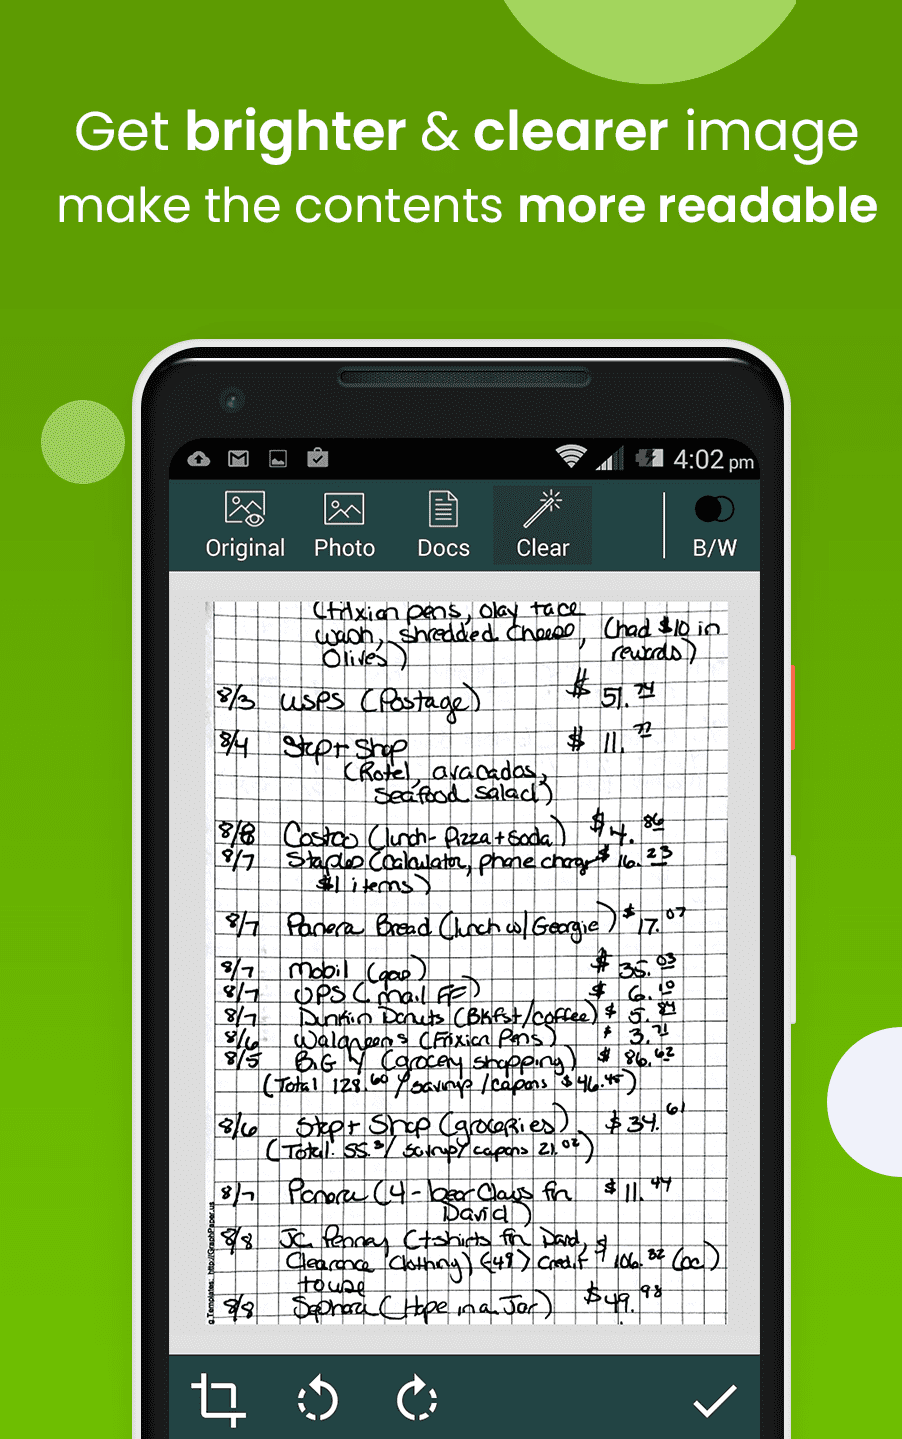 Get brighter & clearer image
make the contents more readable
4:02 pm
Original Photo Docs Clear B/W
pens, olay face
wash, shredded cheese, (had $10 in
Olives) rewards)
8/3 USPS (Postage) $ 51.74
8/4 Stop + Shop $ 11.77
(Rotel, avacados,
seafood salad)
8/8 Costco (lunch - Pizza + Soda) $ 4.86
8/7 Staples (calculator, phone charger $ 16.23
$1 items)
8/7 Panera Bread (lunch w/ Georgie) $ 17.07
8/7 Mobil (gas) $ 35.03
8/7 UPS (mail FF) $ 6.10
8/7 Dunkin Donuts (BKfst/coffee) $ 5.84
8/6 Walgreens (Frixion Pens) $ 3.71
8/5 Big Y (grocery shopping) $ 86.62
(Total 128.60 / savings / capons $ 46.45)
8/6 Stop + Shop (groceries) $ 34.61
(Total: 55. / savings/ capons 21.02)
8/7 Panera (4 - bear Claws for $ 11.44
David)
8/8 JC Penney (t-shirts for David, $
Clearance Clothing) (-49) credit 106.32 (oc)
to use
8/8 Sephora (Hope in a Jar) $49.98
Templates: http://GraphPaper.us